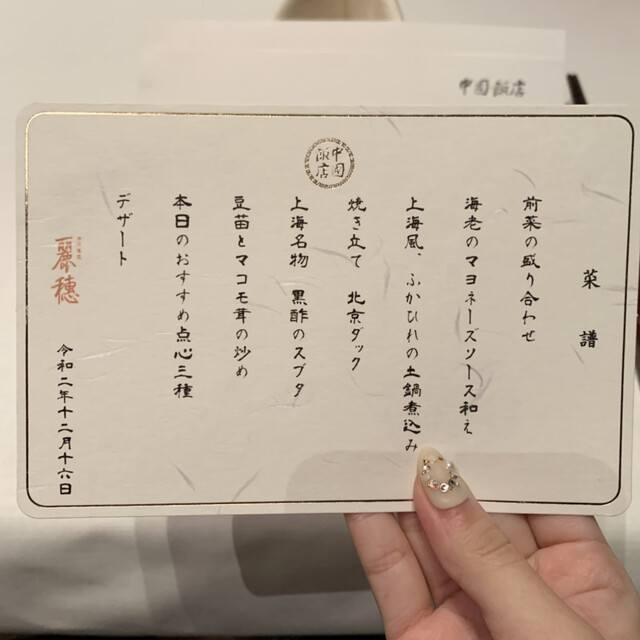 中國飯店
中國飯店
菜譜
前菜の盛り合わせ
海老のマヨネーズソース和え
上海風、ふかひれの土鍋煮込み
焼き立て 北京ダック
上海名物 黒酢のスブタ
豆苗とマコモ茸の炒め
本日のおすすめ点心三種
デザート
麗穂
令和二年十二月十六日